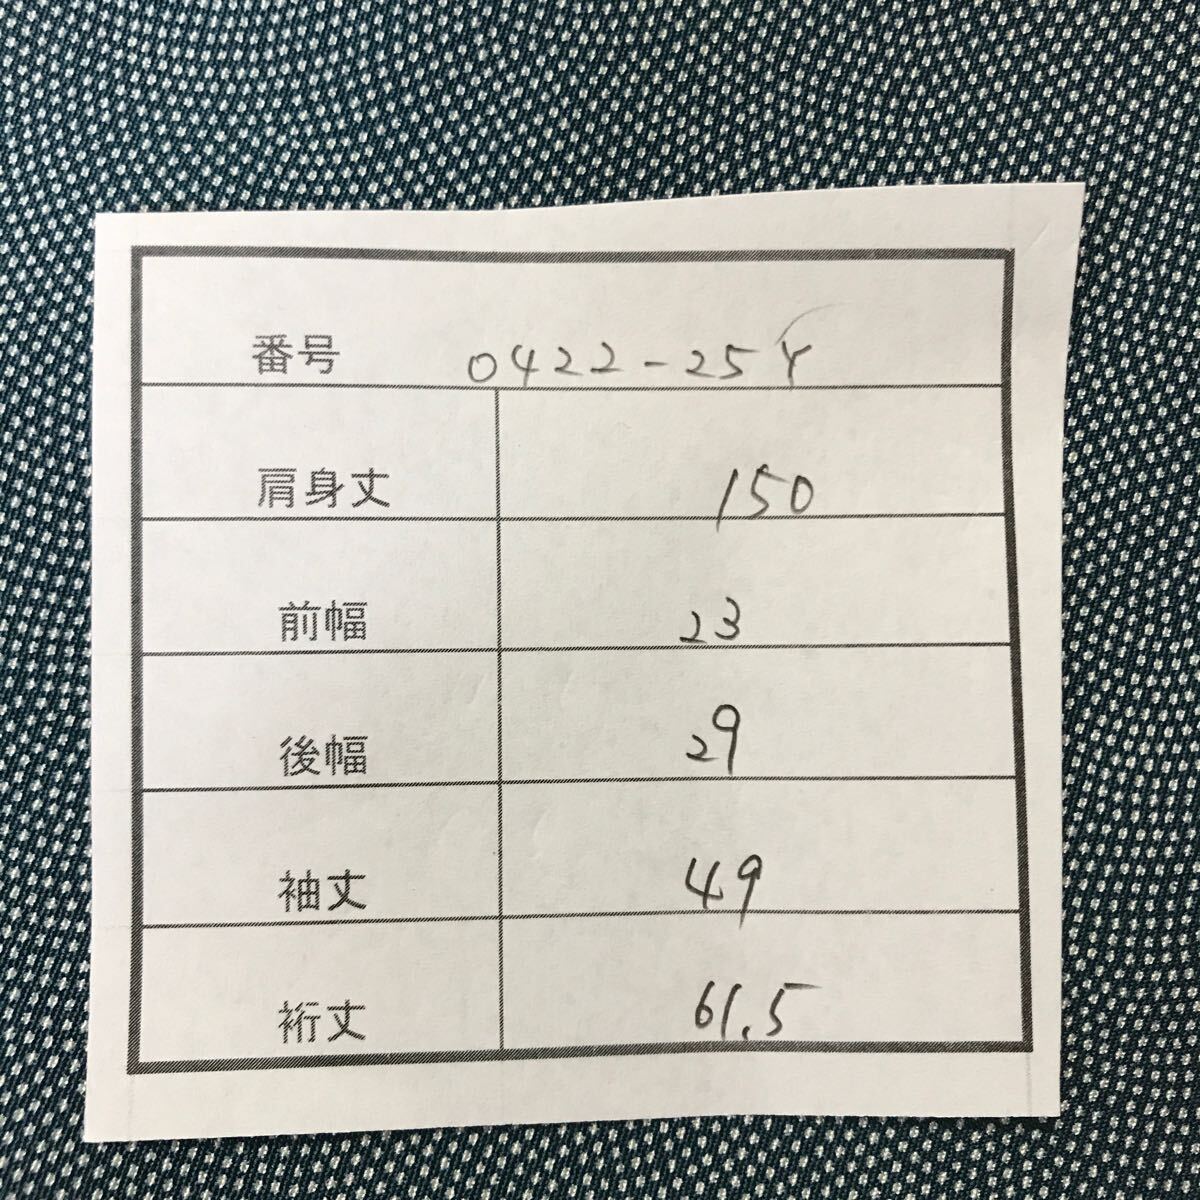 番号 0422-25Y
肩身丈 150
前幅 23
後幅 29
袖丈 49
裄丈 61.5